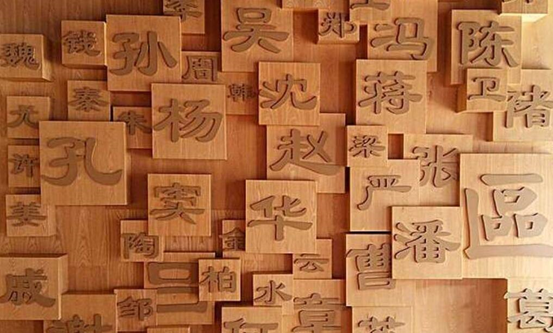 李 吴 郑 冯 陈
魏 钱 孙 周 韩 沈 蒋 卫 褚
尤 秦 朱 杨 赵 梁 张
许 孔 窦 华 严 區
姜 陶 金 云 曹 潘
戚 邹 三 柏 水 葛
谢 何 章